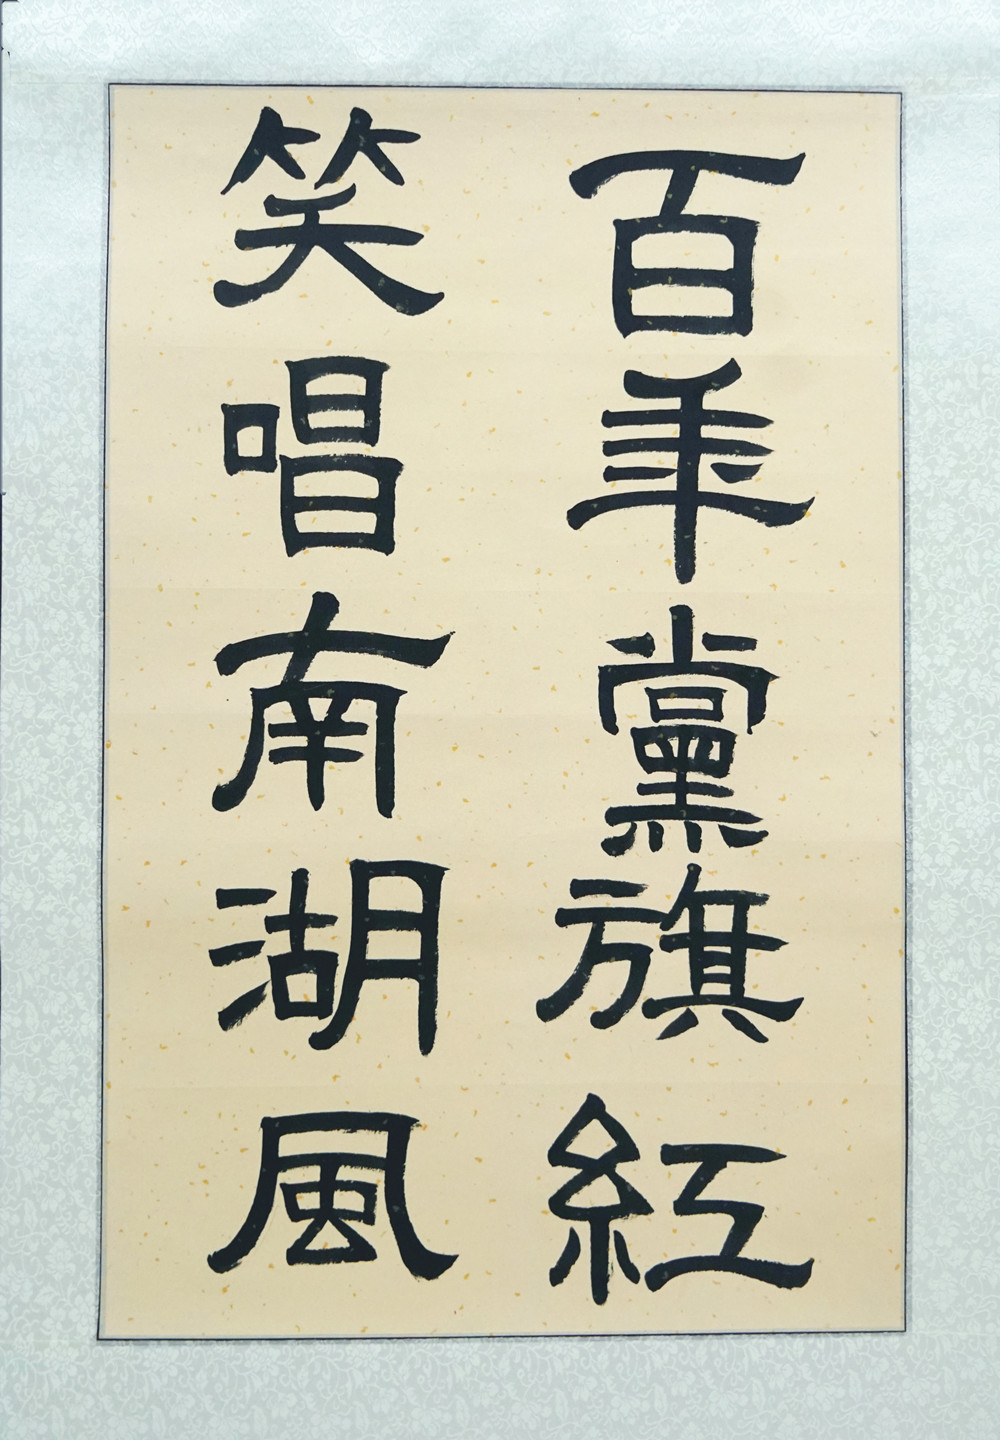 百年黨旗紅
笑唱南湖風